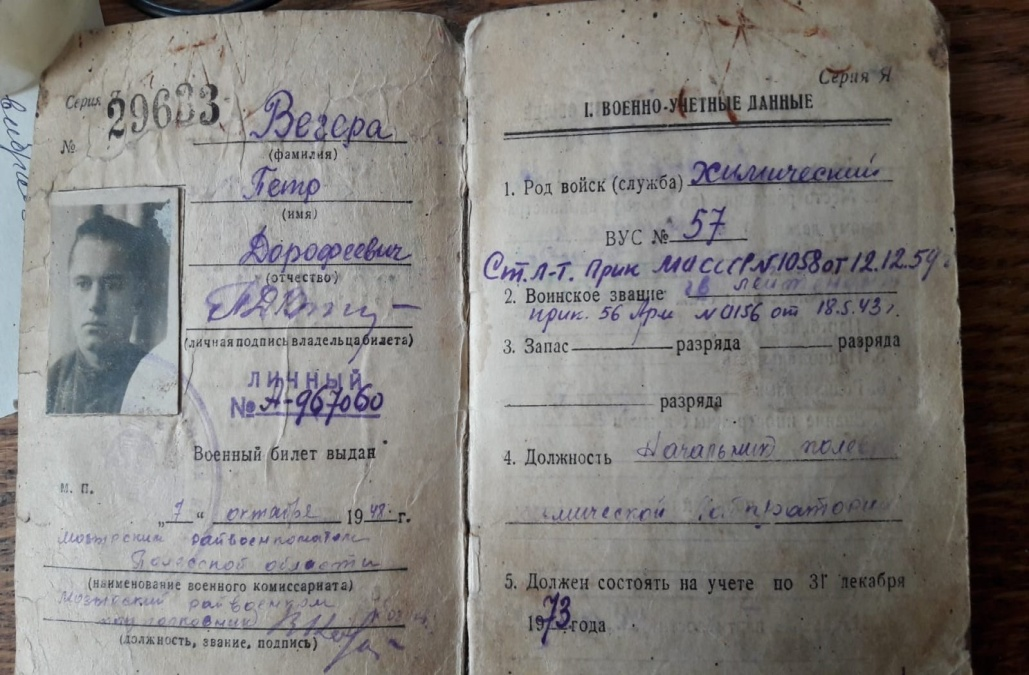 Серия Я
№ 29633
Вегера
(фамилия)
Петр
(имя)
Дорофеевич
(отчество)
(личная подпись владельца билета)
ЛИЧНЫЙ
№ А-967060
Военный билет выдан
М. П.
„7“ октября 1948 г.
Мозырским райвоенкоматом
Полесской области
(наименование военного комиссариата)
Мозырский райвоенком
подполковник
(должность, звание, подпись)
Серия Я
I. ВОЕННО-УЧЕТНЫЕ ДАННЫЕ
1. Род войск (служба) Химический
ВУС № 57
Ст. Л-т. Прик МО СССР N 1058 от 12.12.59 г.
2. Воинское звание лейтенант
прик. 56 Арм N 0156 от 18.5.43 г.
3. Запас разряда разряда
разряда
4. Должность Начальник полев
химической лаборатории
5. Должен состоять на учете по 31 декабря
1973 года